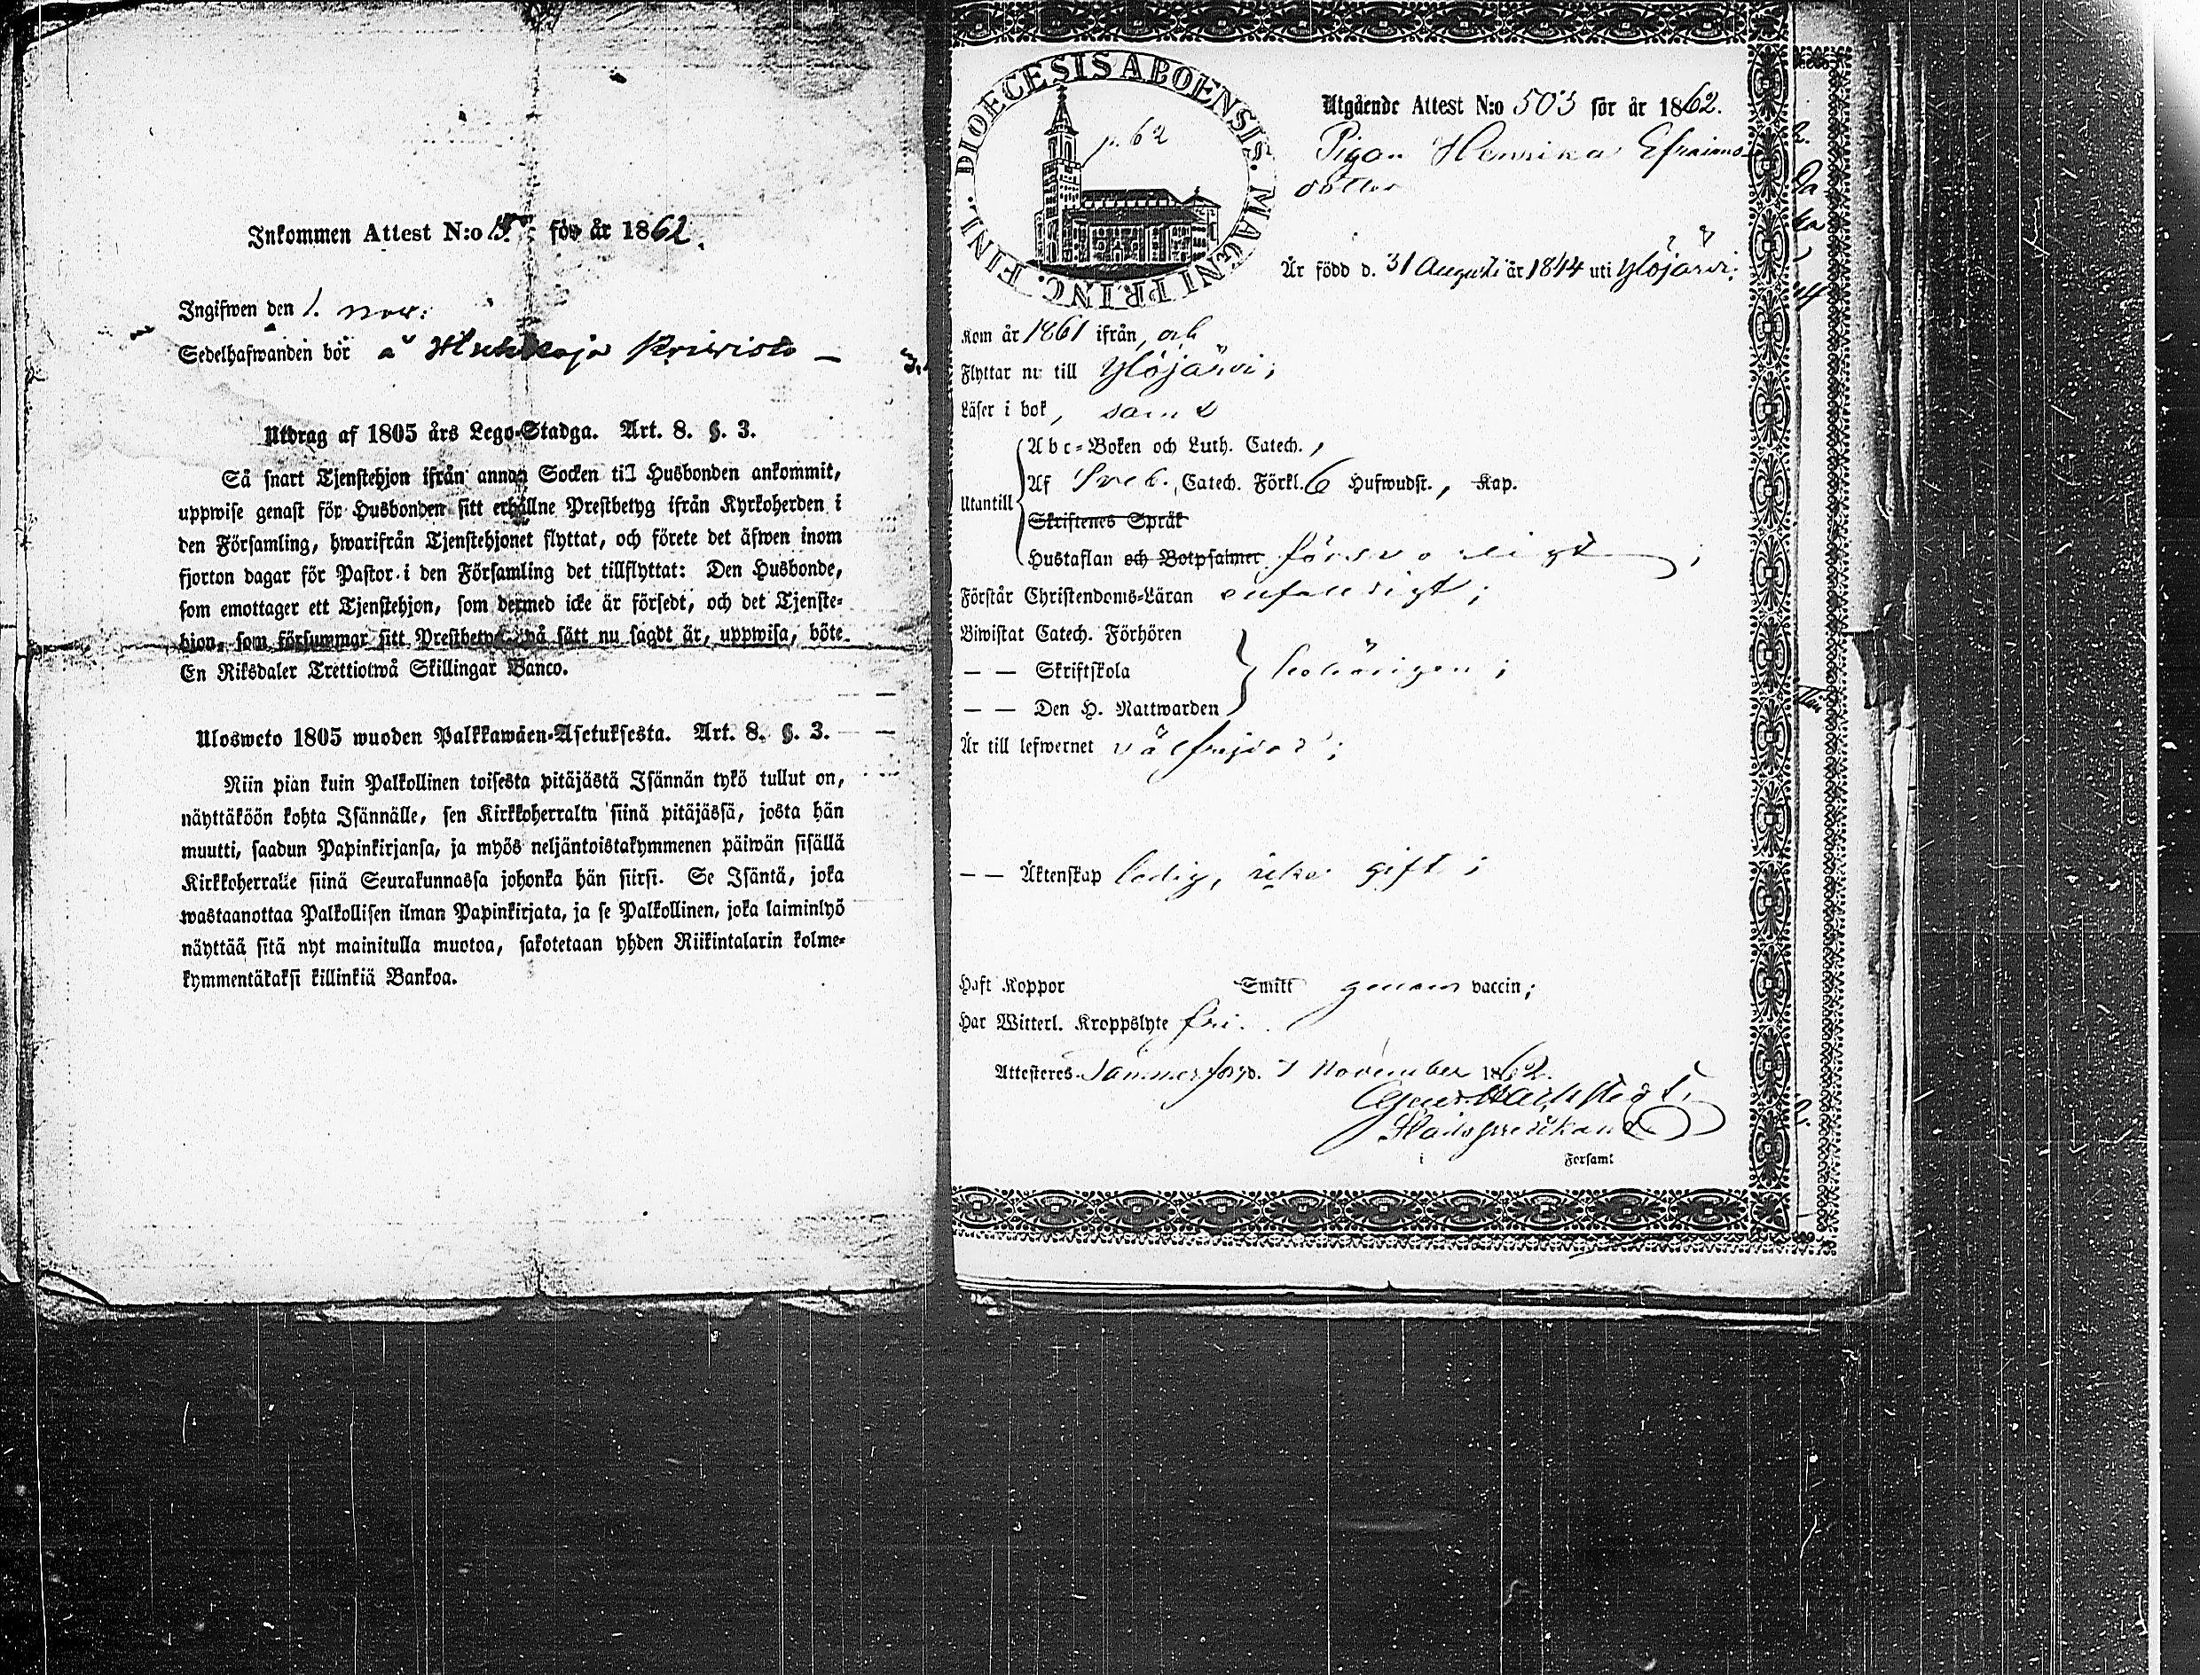 Inkommen Attest N:o för år 1862.
Ingifwen den 1. nov:
Sedelhafwanden bör å
Utdrag af 1805 års Lego-Stadga. Art. 8. §. 3.
Så snart Tjenstehjon ifrån annan Socken till Husbonden ankommit,
uppwise genast för Husbonden sitt erhållne Prestbetyg ifrån Kyrkoherden i
den Församling, hwarifrån Tjenstehjonet flyttat, och förete det äfwen inom
fjorton dagar för Pastor i den Församling det tillflyttat: Den Husbonde,
som emottager ett Tjenstehjon, som dermed icke är försedt, och det Tjenste-
hjon, som försummar sitt Prestbetyg på sätt nu sagdt är, uppwisa, böte
En Riksdaler Trettiotwå Skillingar Banco.
Ulosweto 1805 wuoden Palkkawäen-Asetuksesta. Art. 8. §. 3.
Niin pian kuin Palkollinen toisesta pitäjästä Isännän tykö tullut on,
näyttäköön kohta Isännälle, sen Kirkkoherralta siinä pitäjässä, josta hän
muutti, saadun Papinkirjansa, ja myös neljäntoistakymmenen päiwän sisällä
Kirkkoherralle siinä Seurakunnassa johonka hän siirsi. Se Isäntä, joka
wastaanottaa Palkollisen ilman Papinkirjata, ja se Palkollinen, joka laiminlyö
näyttää sitä nyt mainitulla muotoa, sakotetaan yhden Riikintalarin kolme-
kymmentäkaksi killinkiä Bankoa.
DIOECESIS ABOENSIS. MAGNI PRINC. FINL.
p. 62
Utgående Attest N:o 503 för år 1862.
Pigan Henrika Efraims-
dotter
Är född d. 31 Augusti år 1844 uti Ylöjärvi;
Kom år 1861 ifrån, och
Flyttar nu till Ylöjärvi;
Läser i bok, samt
Abc-Boken och Luth. Catech.,
Af Sveb. Catech. Förkl. 6 Hufwudst., Kap.
Utantill
Skriftenes Språk
Hustaflan och Botpsalmer försvarligt;
Förstår Christendoms-Läran enfaldigt;
Biwistat Catech. Förhören
— — Skriftskola behörigen;
— — Den H. Nattwarden
Är till lefwernet välfrejdad;
— — Äktenskap ledig, icke gift;
Haft Koppor Smitt genom vaccin;
Har Witterl. Kroppslyte fri.
Attesteres Tammerfors d. 1 November 1862.
i Forsaml